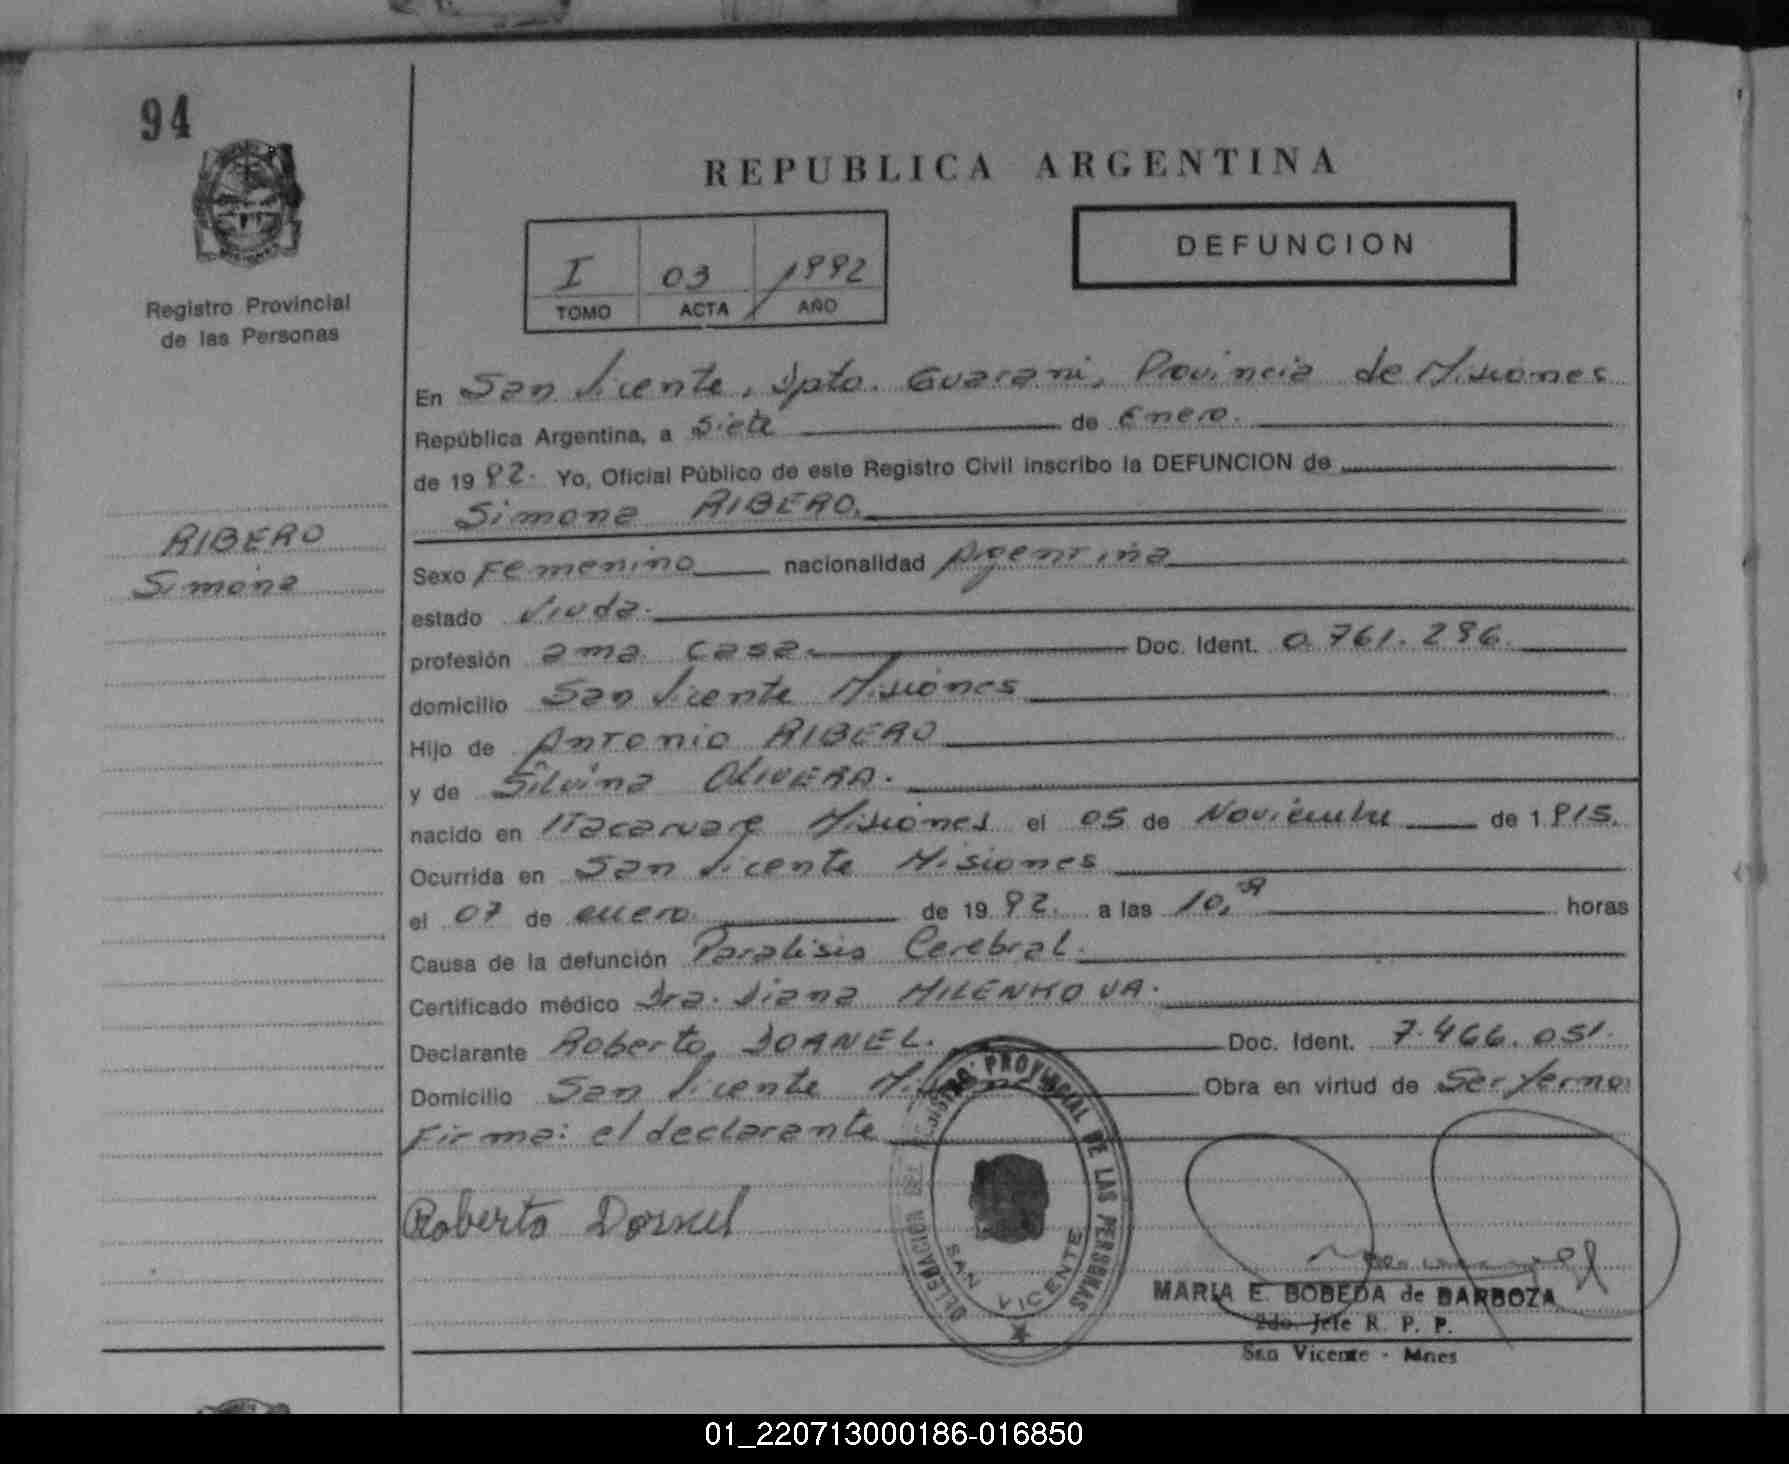 94
REPUBLICA ARGENTINA
DEFUNCION
I 03 1992
TOMO ACTA AÑO
Registro Provincial
de las Personas
RIBERO
Simona
En San Vicente, Dpto. Guarani, Provincia de Misiones
República Argentina, a Siete de Enero.
de 1992. Yo, Oficial Público de este Registro Civil inscribo la DEFUNCION de
Simona RIBERO.
Sexo Femenino nacionalidad Argentina
estado Viuda.
profesión ama casa. Doc. Ident. 0.761.286.
domicilio San Vicente Misiones
Hijo de Antonio RIBERO
y de Silvina OLIVERA.
nacido en Itacaruare Misiones el 05 de Noviembre de 1915.
Ocurrida en San Vicente Misiones
el 07 de enero. de 1992. a las 10, horas
Causa de la defunción Paralisis Cerebral.
Certificado médico Dra. Diana MILENKOVA.
Declarante Roberto DORNEL. Doc. Ident. 7.466.051.
Domicilio San Vicente Misiones Obra en virtud de Ser Yerno.
Firma: el declarante
Roberto Dornel
DELEGACION DEL REGISTRO PROVINCIAL DE LAS PERSONAS
SAN VICENTE
MARIA E. BOBEDA de BARBOZA
2do. Jefe R. P. P.
San Vicente - Mnes
01_220713000186-016850